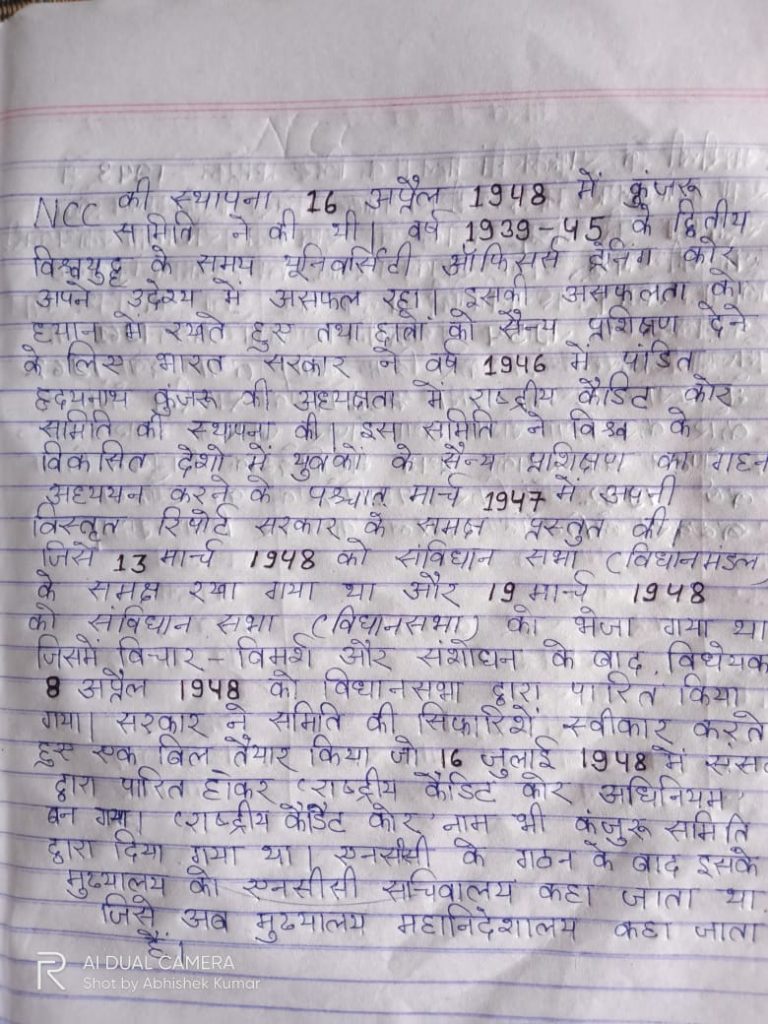 NCC की स्थापना 16 अप्रैल 1948 में कुंजरू
समिति ने की थी। वर्ष 1939-45 के द्वितीय
विश्वयुद्ध के समय यूनिवर्सिटी ऑफिसर्स ट्रेनिंग कोर
अपने उदेश्य में असफल रहा। इसकी असफलता को
ध्याना में रखते हुए तथा छात्रों को सैन्य प्रशिक्षण देने
के लिए भारत सरकार ने वर्ष 1946 में पंडित
हृदयनाथ कुंजरू की अध्यक्षता में राष्ट्रीय कैडिट कोर
समिति की स्थापना की। इसा समिति ने विश्व के
विकसित देशो में युवकों के सैन्य प्रशिक्षण का गहन
अध्ययन करने के पश्चात् मार्च 1947 में अपनी
विस्तृत रिपोर्ट सरकार के समक्ष प्रस्तुत की।
जिसे 13 मार्च 1948 को संविधान सभा (विधानमंडल)
के समक्ष रखा गया था और 19 मार्च 1948
को संविधान सभा (विधानसभा) को भेजा गया था
जिसमें विचार-विमर्श और संशोधन के बाद विधेयक
8 अप्रैल 1948 को विधानसभा द्वारा पारित किया
गया। सरकार ने समिति की सिफारिशें स्वीकार करते
हुए एक बिल तैयार किया जो 16 जुलाई 1948 में संसद
द्वारा पारित होकर 'राष्ट्रीय कैडिट कोर अधिनियम'
बन गया। 'राष्ट्रीय कैडेट कोर' नाम भी कंजुरू समिति
द्वारा दिया गया था। एनसीसी के गठन के बाद इसके
मुख्यालय को एनसीसी सचिवालय कहा जाता था
जिसे अब मुख्यालय महानिदेशालय कहा जाता
है।
AI DUAL CAMERA
Shot by Abhishek Kumar